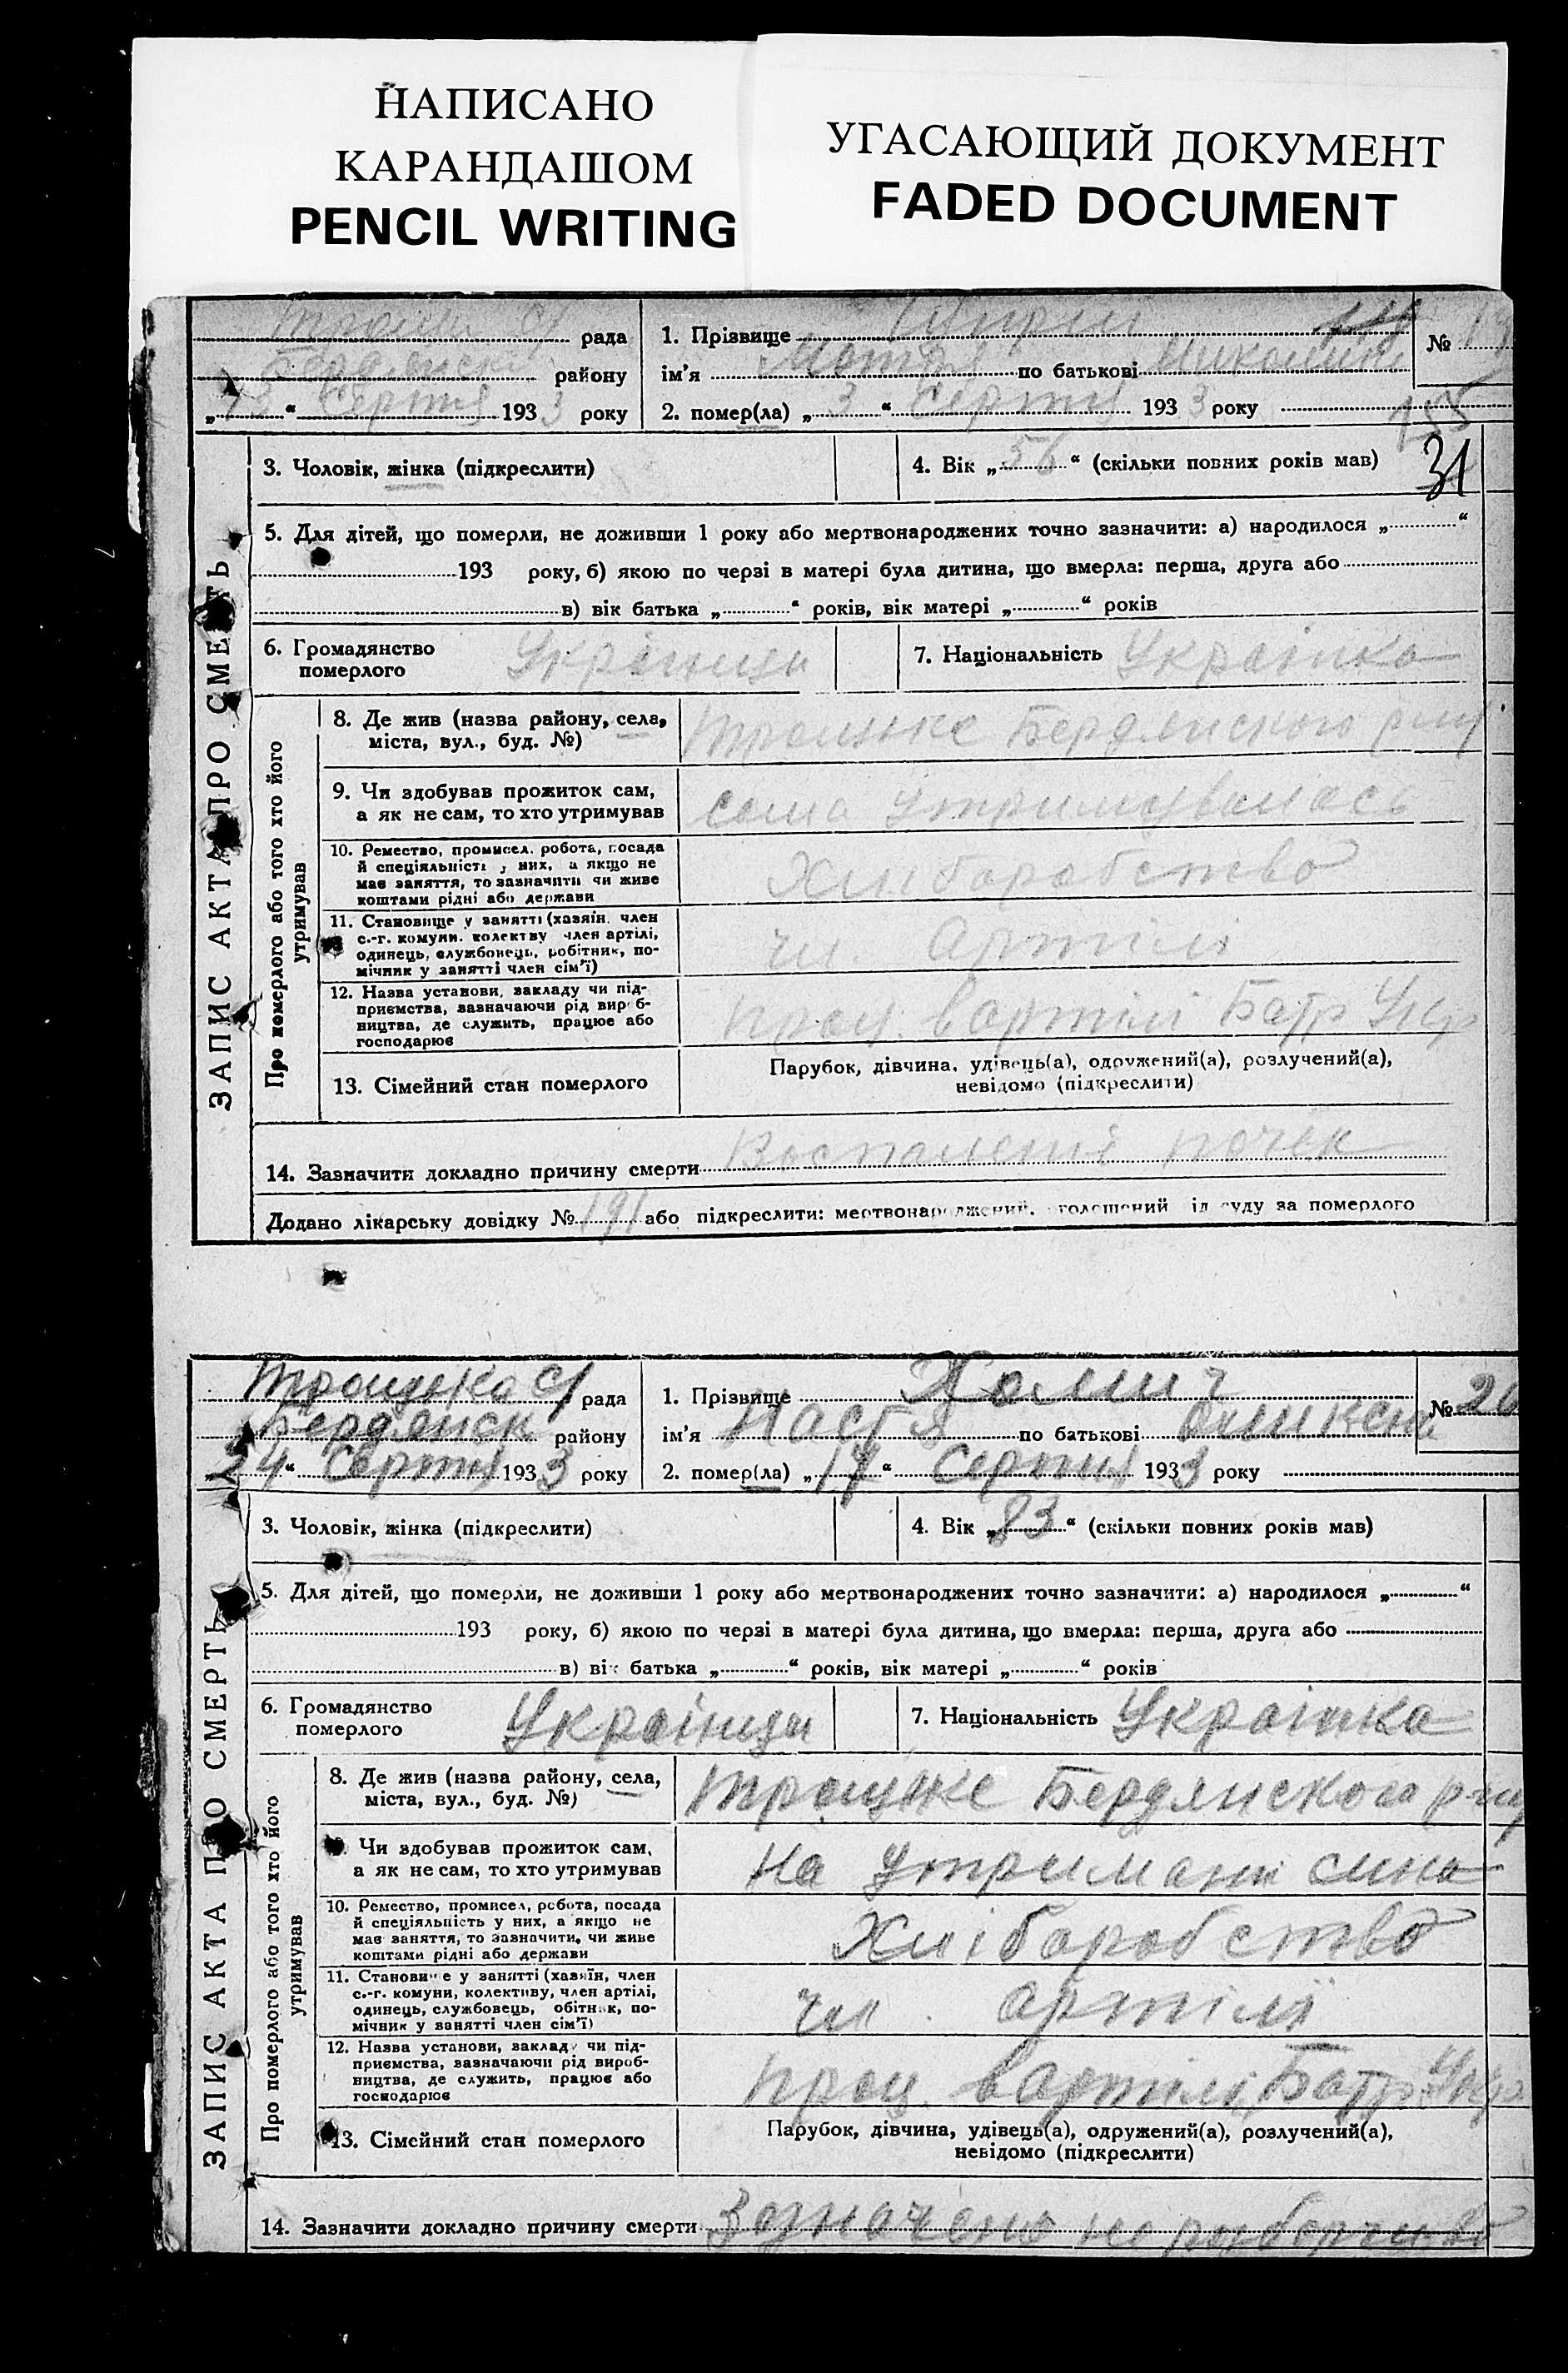 НАПИСАНО
КАРАНДАШОМ
PENCIL WRITING
УГАСАЮЩИЙ ДОКУМЕНТ
FADED DOCUMENT
рада
району
Серпня 1933 року
1. Прізвище
ім'я Мотря по батькові
2. помер(ла) „3“ Серпня 1933 року
№ 19
155
31
ЗАПИС АКТА ПРО СМЕРТЬ
3. Чоловік, жінка (підкреслити)
4. Вік „56“ (скільки повних років мав)
5. Для дітей, що померли, не доживши 1 року або мертвонароджених точно зазначити: а) народилося „ “
193 року, б) якою по черзі в матері була дитина, що вмерла: перша, друга або
в) вік батька „ “ років, вік матері „ “ років
6. Громадянство померлого Українци
7. Національність Українка
Про померлого або того хто його утримував
8. Де жив (назва району, села,
міста, вул., буд. №)
Троицьке Бердянского р-ну
9. Чи здобував прожиток сам,
а як не сам, то хто утримував
сама утримувалась
10. Ремество, промисел, робота, посада
й спеціяльність у них, а якщо не
має заняття, то зазначити чи живе
коштами рідні або держави
Хліборобство
11. Становище у занятті (хазяїн, член
с.-г. комуни, колективу член артілі,
одинець, службовець, робітник, по-
мічник у занятті член сім'ї)
чл. Артілі
12. Назва установи, закладу чи під-
приємства, зазначаючи рід вироб-
ництва, де служить, працює або
господарює
прац. в артілі
13. Сімейний стан померлого
Парубок, дівчина, удівець(а), одружений(а), розлучений(а),
невідомо (підкреслити)
14. Зазначити докладно причину смерти Воспаления почек
Додано лікарську довідку № 191 або підкреслити: мертвонароджений, оголошений від суду за померлого
Троицька с/рада
Бердянск району
24 “ Серпня 1933 року
1. Прізвище Хомич
ім'я Настя по батькові
2. помер(ла) „17“ Серпня 1933 року
№ 20
ЗАПИС АКТА ПРО СМЕРТЬ
3. Чоловік, жінка (підкреслити)
4. Вік „83“ (скільки повних років мав)
5. Для дітей, що померли, не доживши 1 року або мертвонароджених точно зазначити: а) народилося „ “
193 року, б) якою по черзі в матері була дитина, що вмерла: перша, друга або
в) вік батька „ “ років, вік матері „ “ років
6. Громадянство померлого Українци
7. Національність Українка
Про померлого або того хто його утримував
8. Де жив (назва району, села,
міста, вул., буд. №)
Троицьке Бердянского р-ну
9. Чи здобував прожиток сам,
а як не сам, то хто утримував
на утримані сина
10. Ремество, промисел, робота, посада
й спеціяльність у них, а якщо не
має заняття, то зазначити, чи живе
коштами рідні або держави
Хліборобство
11. Становище у занятті (хазяїн, член
с.-г. комуни, колективу, член артілі,
одинець, службовець, робітник, по-
мічник у занятті член сім'ї)
чл. артілі
12. Назва установи, закладу чи під-
приємства, зазначаючи рід вироб-
ництва, де служить, працює або
господарює
прац. в артілі
13. Сімейний стан померлого
Парубок, дівчина, удівець(а), одружений(а), розлучений(а),
невідомо (підкреслити)
14. Зазначити докладно причину смерти Зазначено не разборчиво